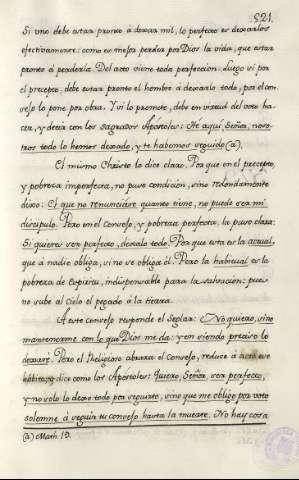 521.
Si uno debe estar pronto á dexar mil, lo perfecto es dexarlos
efectivamente: como es mejor perder por Dios la vida, que estar
pronto á perderla. Del acto viene toda perfeccion. Luego si por
el precepto, debe estar pronto el hombre á dexarlo todo, por el con-
sejo lo pone por obra. Y si lo promete, debe en virtud del voto ha-
cer, y decir con los sagrados Apóstoles: He aqui, Señor, noso-
tros todo lo hemos dexado, y te habemos seguido (a).
El mismo Christo lo dice claro. Porque en el precepto,
y pobreza imperfecta, no puso condicion, sino redondamente
dixo: El que no renunciáre quanto tiene, no puede ser mi
discipulo. Pero en el consejo, y pobreza perfecta, la puso clara:
Si quieres ser perfecto, dexalo todo. Porque esta es la actual,
que á nadie obliga, si no se obliga él. Pero la habitual es la
pobreza de Espiritu, indispensable para la salvacion: pues
no sube al Cielo el pegado á la tierra.
A este consejo responde el Seglar: No quiero, sino
mantenerme con lo que Dios me da: y en siendo preciso lo
dexaré. Pero el Religioso abraza el Consejo, reduce á acto ese
hábito, y dice como los Apóstoles: Quiero, Señor, ser perfecto,
y no solo lo dexo todo por seguirte, sino que me obligo por voto
solemne á seguir tu consejo hasta la muerte. No hay cosa
(a) Math. 19.